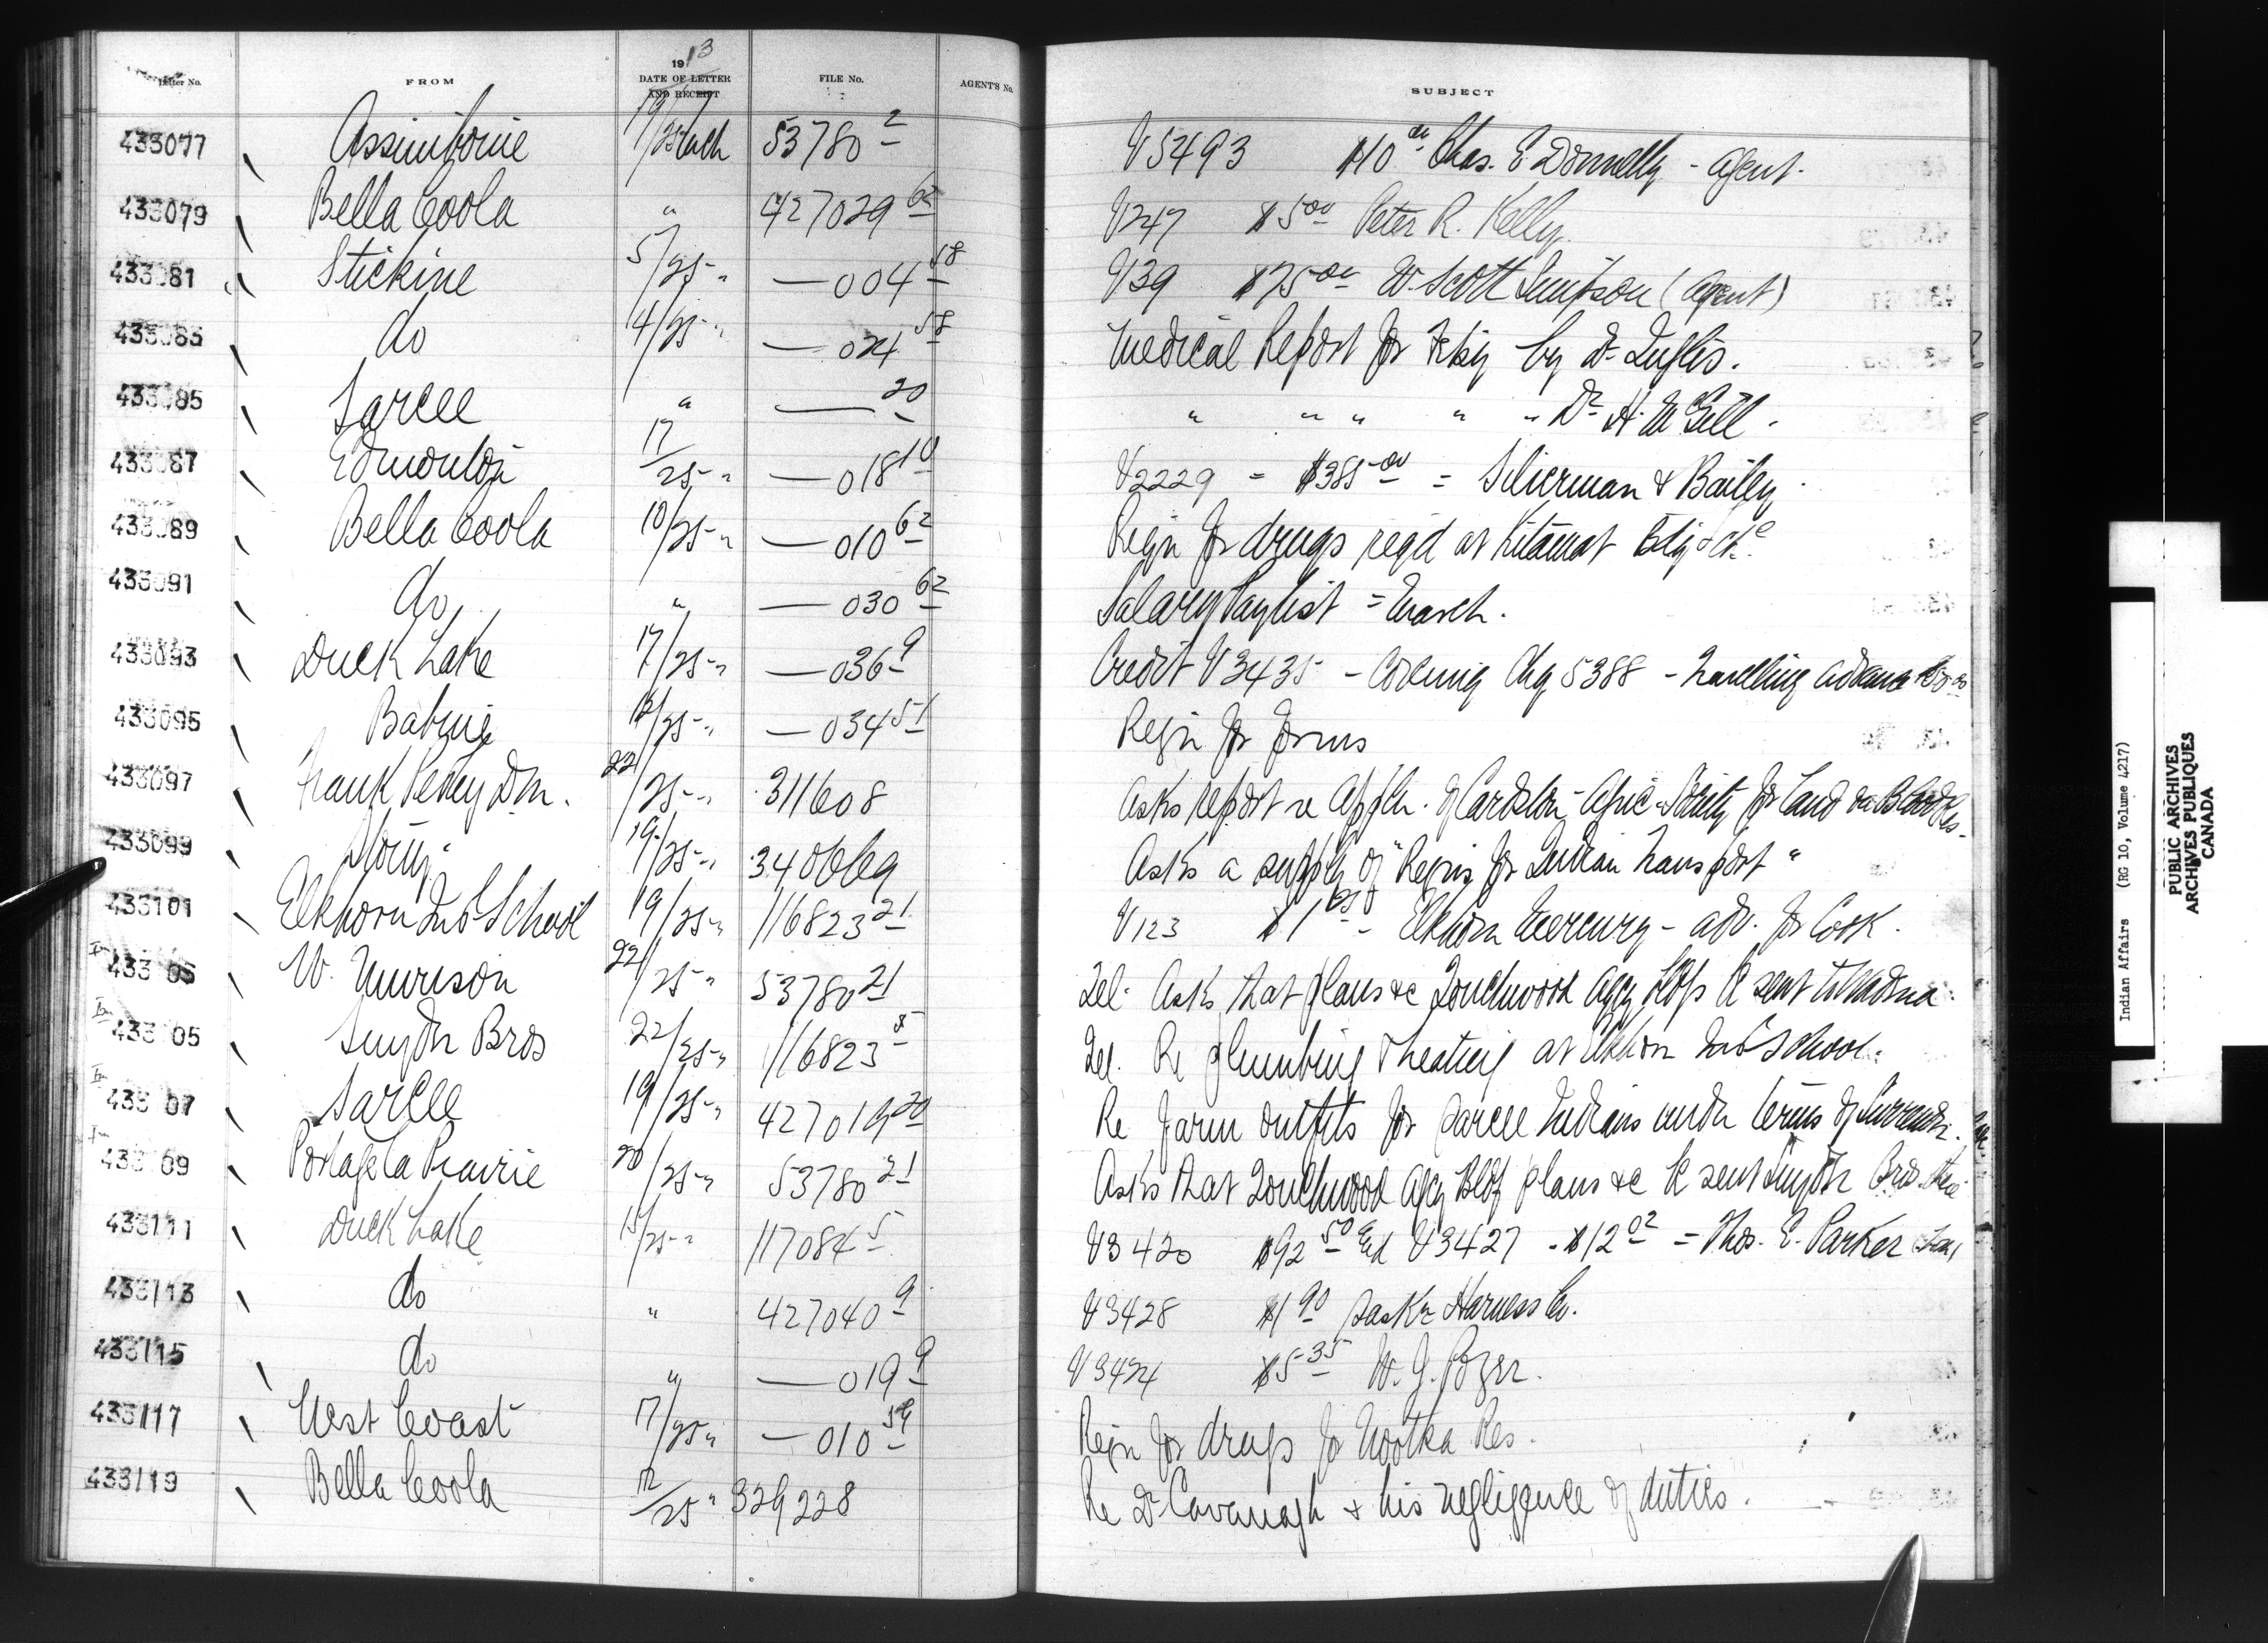 Letter No. FROM 1913 DATE OF LETTER AND RECEIPT FILE No. AGENT'S No. SUBJECT
433077 Assiniboine 19/25 Mch 53780 2 V5493 $10 00 Chas. E. Donnelly - Agent.
433079 Bella Coola " 427029 62 V247 $5 00 Peter R. Kelly
433081 Stickine 5/25 " — 004 58 V39 $75 00 W. Scott Simpson (Agent)
433083 do 4/25 " — 024 58 Medical Report for by Dr Inglis.
433085 Sarcee " — 20 " " " " " Dr H. McGill.
433087 Edmonton 17/25 " — 018 10 V2229 = $385 00 = Silverman & Bailey
433089 Bella Coola 10/25 " — 010 62 Reqn for drugs reqd at Kitamat
433091 do " — 030 62 Salary Paylist = March.
433093 Duck Lake 17/25 " — 036 9 Credit V3435 - Covering Chq 5388 - Travelling advance
433095 Babine /25 " — 034 51 Reqn for forms
433097 Frank Pedley Dm. 22/25 " 311608 Asks report re Appln. of Cardston Agric. Society for Land on Blood Res.
433099 Stony 19/25 " 340669 Asks a supply of "Reqns for Indian Transport"
433101 Elkhorn Ind School 19/25 " 116823 21 V123 $1 Elkhorn Mercury - adv. for Cook.
433 05 W. Murison 22/25 " 53780 21 Tel. Asks that plans &c Touchwood Agcy Bldgs be sent
433 05 Smyth Bros 22/25 " 116823 5 Tel. Re plumbing & heating at Elkhorn Ind School.
433 07 Sarcee 19/25 " 427019 20 Re Farm outfits for Sarcee Indians under terms of Surrender.
433 09 Portage la Prairie 20/25 " 53780 21 Asks that Touchwood Agcy Bldg plans &c be sent Smyth Bros there
433111 Duck Lake 15/25 " 117084 5 V3420 $92 50 and V3427 - $12 02 = Thos. E. Parker
433113 do " 427040 9 V3428 $1 90 Saskn Harness Co.
433115 do " — 019 9 V3424 $5 35 W. J.
433117 West Coast 17/25 " — 010 59 Reqn for drugs for Nootka Res.
433119 Bella Coola 12/25 " 329228 Re Dr Cavanagh & his negligence of duties.
Indian Affairs (RG 10, Volume 4217)
PUBLIC ARCHIVES
ARCHIVES PUBLIQUES
CANADA